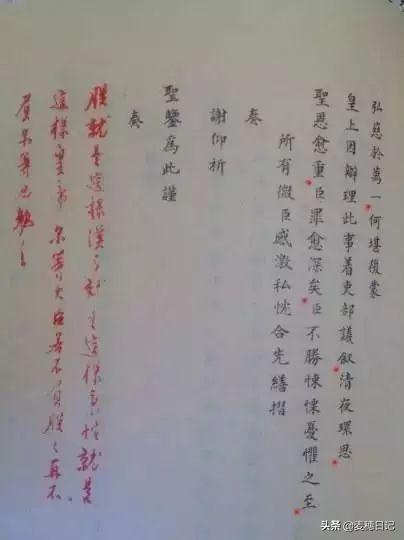 弘慈於萬一何堪復蒙
皇上因辦理此事着吏部議敘清夜環思
聖恩愈重臣罪愈深矣臣不勝悚慄憂懼之至
所有微臣感激私忱合先繕摺
奏
謝仰祈
聖鑒為此謹
奏
朕就是這樣漢子就是這樣秉性就是
這樣皇帝尔等大臣若不負朕々再不
負尔等也勉之
头条 @麦穗日记